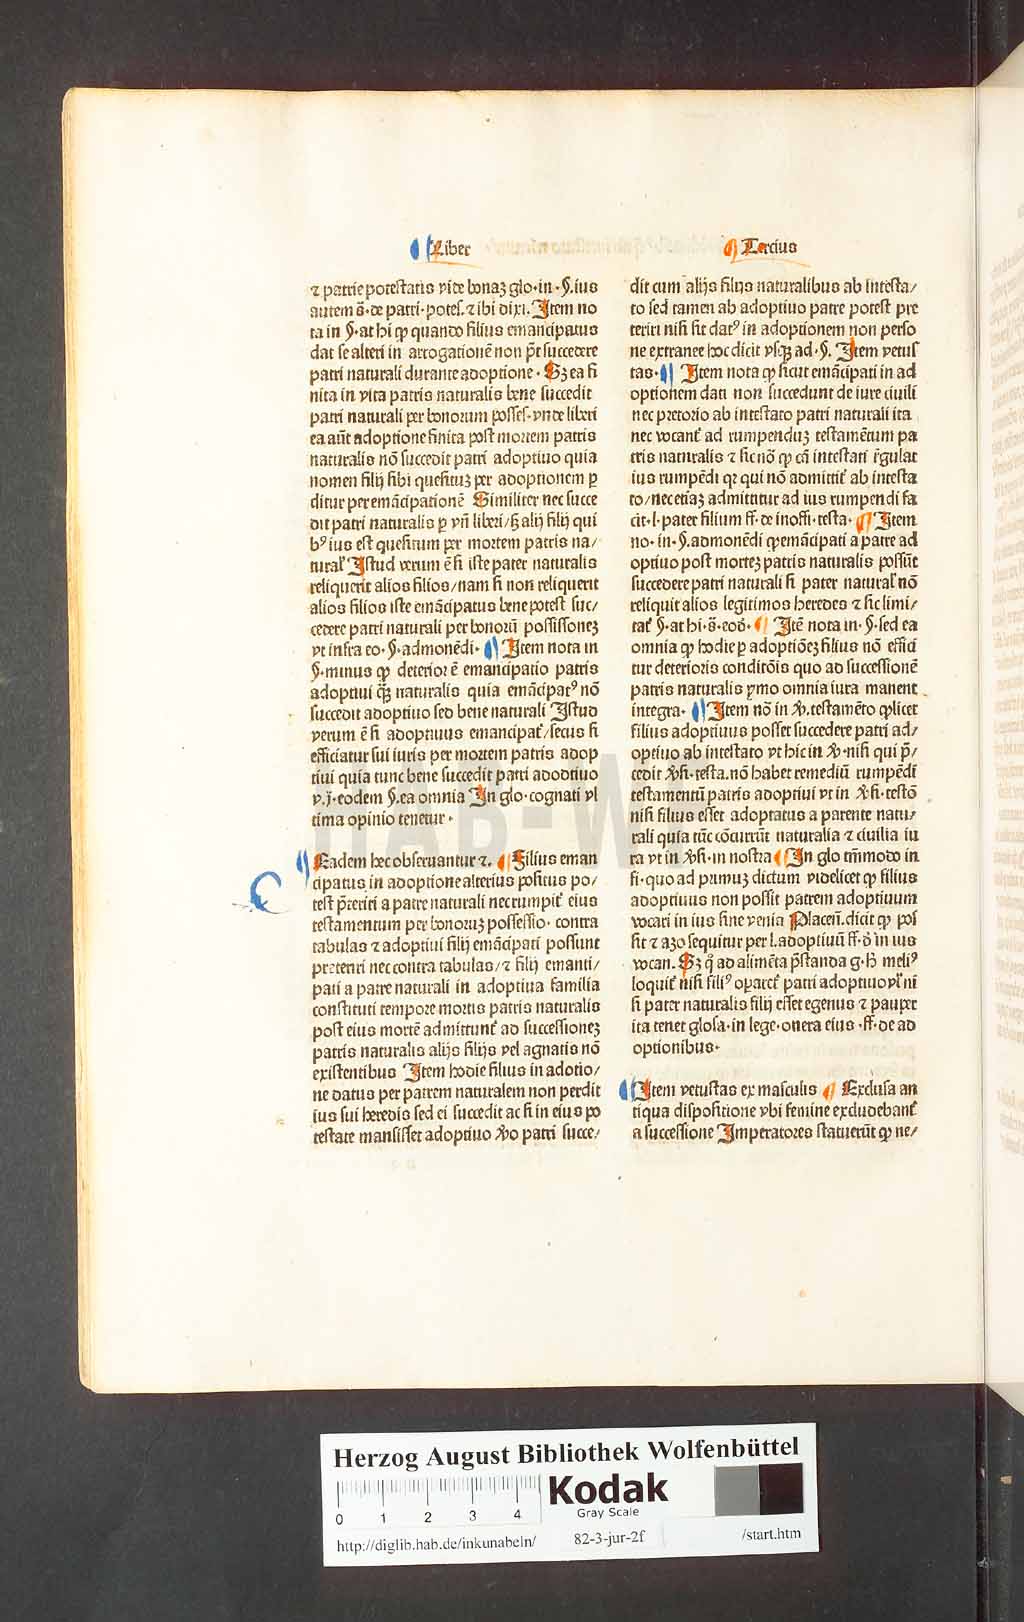 Liber
Tercius
⁊ patrie potestatis vide bonaꝫ glo·in·§.ius
autem ·de patri·potes.⁊ ibi dixi. Item no
ta in §·at hi ꝙ quando filius emancipatus
dat se alteri in arrogationē non pt̄ succedere
patri naturali durante adoptione· Sꝫ ea fi
nita in vita patris naturalis bene succedit
patri naturali per bonorum posses·vnde liberi
ea aut̄ adoptione finita post mortem patris
naturalis nō succedit patri adoptiuo quia
nomen filij sibi quesituꝫ per adoptionem ꝑ
ditur per emācipationē Similiter nec succe
dit patri naturalis ꝑ vn̄ liberi/ alij filij qui
bꝰ ius est quesitum per mortem patris na/
tural Istud verum ē si iste pater naturalis
reliquerit alios filios/nam si non reliquerit
alios filios iste emācipatus bene potest suc/
cedere patri naturali per bonoꝝ possissioneꝫ
vt infra eo·§·admonēdi· Item nota in
§·minus ꝙ deterior ē emancipatio patris
adoptiui ꝙ̄ꝫ naturalis quia emācipatꝰ nō
succedit adoptiuo sed bene naturali Istud
verum ē si adoptiuus emancipat̄/secus si
efficiatur sui iuris per mortem patris adop
tiui quia tunc bene succedit patri adodtiuo
v·j·eodem §·ea omnia In glo·cognati vl
tima opinio tenetur·
Eadem hec obseruantur ⁊. Filius eman
cipatus in adoptione alterius positus po/
test p̄teriri a patre naturali nec rumpit̄ eius
testamentum per bonoruꝫ possessio· contra
tabulas ⁊ adoptiui filij emācipati possunt
preteriri nec contra tabulas/⁊ filij emanti/
pati a patre naturali in adoptiua familia
constituti tempore mortis patris naturalis
post eius mortē admittunt̄ ad successioneꝫ
patris naturalis alijs filijs vel agnatis nō
existentibus Item hodie filius in adotio/
ne datus per patrem naturalem non perdit
ius sui heredis sed ei succedit ac si in eius po
testate mansisset adoptiuo ꝟo patri succe/
dit cum alijs filijs naturalibus ab intesta/
to sed tamen ab adoptiuo patre potest pre
teriri nisi sit datꝰ in adoptionem non perso
ne extranee hoc dicit vsqꝫ ad·§. Item vetus
tas· Item nota ꝙ sicut emācipati in ad
optionem dati non succedunt de iure ciuili
nec pretorio ab intestato patri naturali ita
nec vocant̄ ad rumpenduꝫ testamētum pa
tris naturalis ⁊ sic nō ꝙ cā intestati r̄gulat
ius rumpēdi qꝛ qui nō admittit̄ ab intesta
to/nec etiaꝫ admittitur ad ius rumpendi fa
cit·l·pater filium ff·de inoffi·testa· Item
no·in·§.admonēdi ꝙ emācipati a patre ad
optiuo post morteꝫ patris naturalis possūt
succedere patri naturali si pater natural nō
reliquit alios legitimos heredes ⁊ sic limi/
tat̄ §·at hi··eod. Itē nota in·§·sed ea
omnia ꝙ hodie ꝑ adoptiōeꝫ filius nō effici
tur deterioris conditōis quo ad successionē
patris naturalis ymo omnia iura manent
integra· Item nō in ꝟ·testamēto ꝙ licet
filius adoptiuus posset succedere patri ad/
optiuo ab intestato vt hic in ꝟ·nisi qui p̄/
cedit ꝟsi·testa.nō habet remediū rumpēdi
testamentū patris adoptiui vt in ꝟsi·testō
nisi filius esset adoptatus a parente natu/
rali quia tūc cōcurrūt naturalia ⁊ ciuilia iu
ra vt in ꝟsi·in nostra In glo tm̄modo in
fi·quo ad primuꝫ dictum videlicet ꝙ filius
adoptiuus non possit patrem adoptiuum
vocari in ius sine venia Placen̄.dicit ꝙ pos
sit ⁊ azo sequitur per l.adoptiuū ff·d̄ in ius
vocan. Sꝫ ad alimēta p̄standa g·h̄ meliꝰ
loquit̄ nisi filiꝰ oparet̄ patri adoptiuo vl ni
si pater naturalis filij esset egenus ⁊ pauper
ita tenet glosa·in lege·onera eius·ff·de ad
optionibus·
Item vetustas ex masculis Exclusa an
tiqua dispositione vbi femine excludebant̄
a successione Imperatores statuerūt ꝙ ne/
HAB-WF
Herzog August Bibliothek Wolfenbüttel
0 1 2 3 4
Kodak
Gray Scale
http://diglib.hab.de/inkunabeln/
82-3-jur-2f
/start.htm